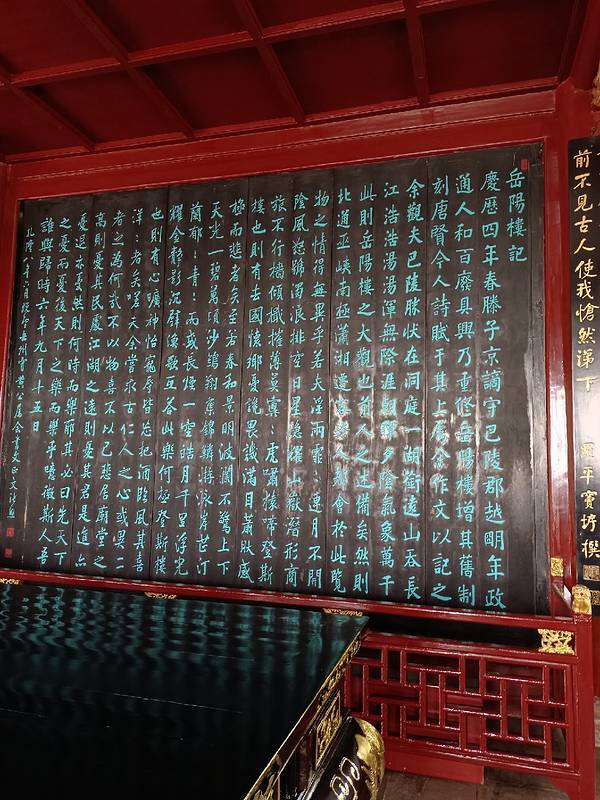 岳陽樓記
慶歷四年春滕子京謫守巴陵郡越明年政
通人和百廢具興乃重修岳陽樓增其舊制
刻唐賢今人詩賦于其上屬余作文以記之
余觀夫巴陵勝狀在洞庭一湖銜遠山吞長
江浩浩湯湯渾無際涯朝暉夕陰氣象萬千
此則岳陽樓之大觀也前人之述備矣然則
北通巫峽南極瀟湘遷客騷人都會於此覽
物之情得無異乎若夫淫雨霏:連月不開
陰風怒號濁浪排空日星隱曜山嶽潛形商
旅不行檣傾檝摧薄暮冥:虎嘯猿啼登斯
樓也則有去國懷鄉憂讒畏譏滿目蕭然感
極而悲者矣至若春和景明波瀾不驚上下
天光一碧萬頃沙鷗翔集錦鱗游泳岸芷汀
蘭郁:青:而或長煙一空皓月千里浮光
耀金靜影沉璧漁歌互答此樂何極登斯樓
也則有心曠神怡寵辱皆忘把酒臨風其喜
洋:者矣嗟夫予嘗求古仁人之心或異二
者之為何哉不以物喜不以己悲居廟堂之
高則憂其民處江湖之遠則憂其君是進亦
憂退亦憂然則何時而樂耶其必曰先天下
之憂而憂後天下之樂而樂乎噫微斯人吾
誰與歸時六年九月十五日
乾隆八年
前不見古人使我愴然涕下
羅平竇垿撰